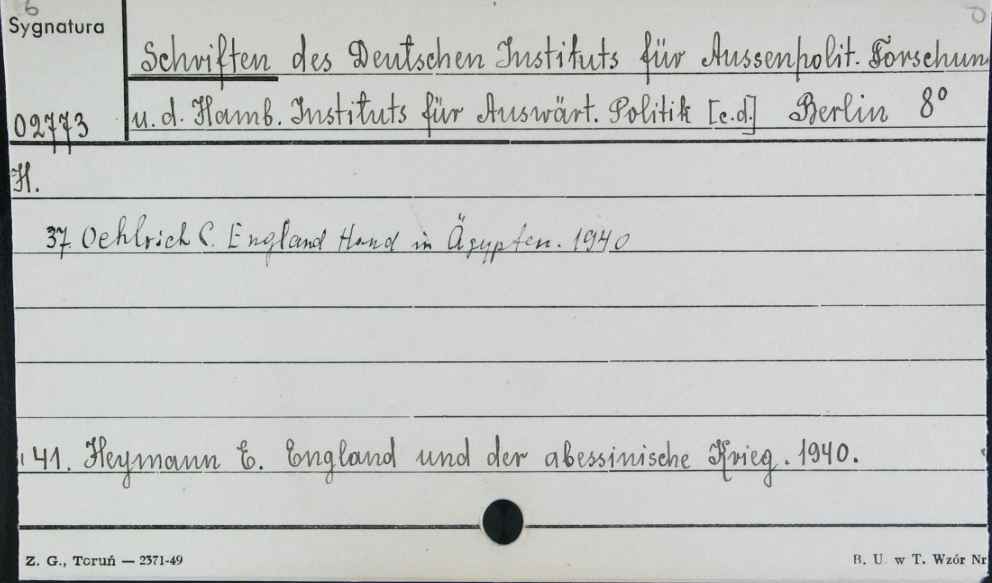 6
Sygnatura
Schriften des Deutschen Instituts für Aussenpolit. Forschun
02773
u. d. Hamb. Instituts für Auswärt. Politik [c.d.] Berlin 8°
H.
37. Oehlrich C. England Hand in Ägypten. 1940
41. Heymann E. England und der abessinische Krieg. 1940.
Z. G., Toruń — 2371-49
B. U. w T. Wzór Nr